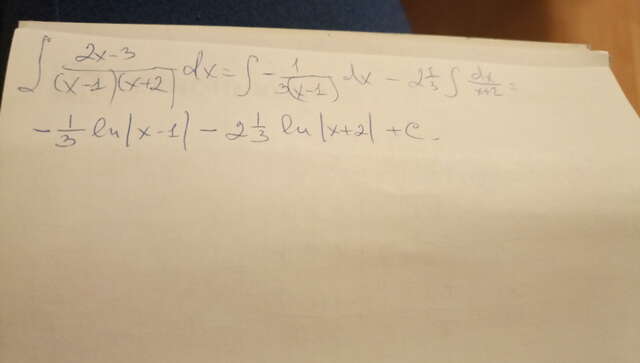 ∫ (2x-3)/((x-1)(x+2)) dx = ∫ - 1/(3(x-1)) dx - 2 1/3 ∫ dx/(x+2) =
- 1/3 ln|x-1| - 2 1/3 ln|x+2| + C.